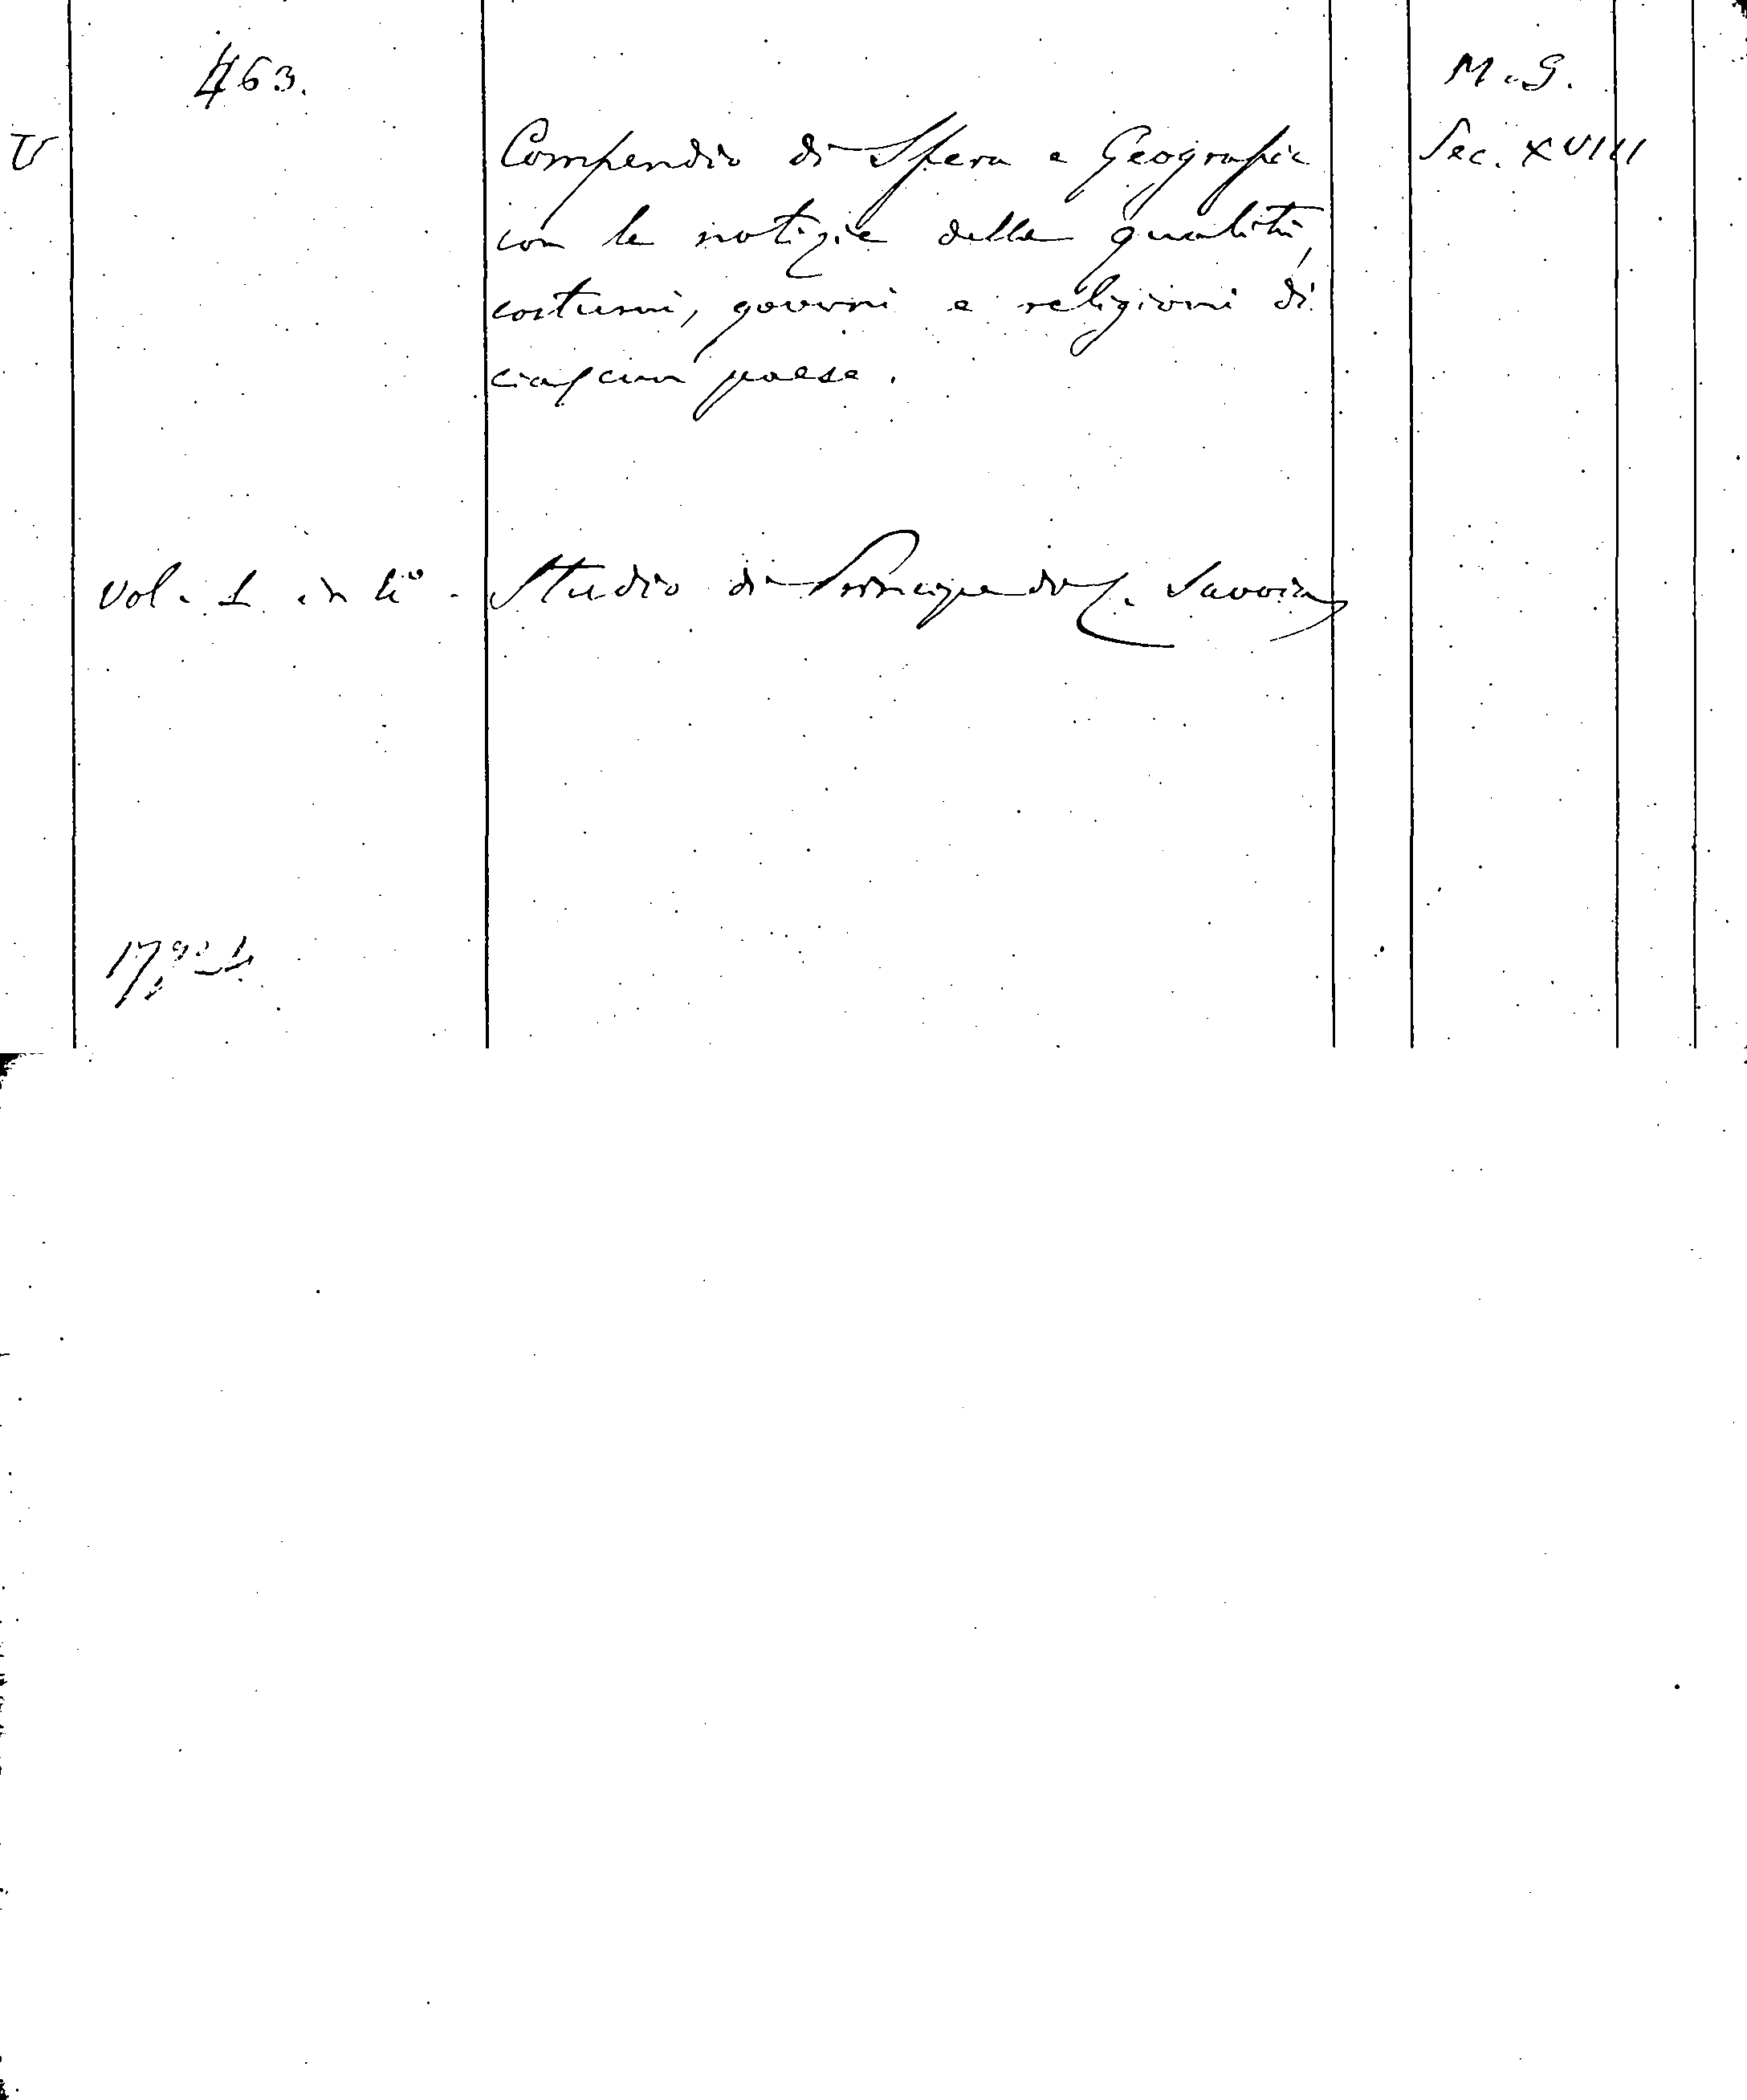 463.
M. S.
V
Compendio di Sfera e Geografia
Sec. XVIII
con le notizie della qualità,
costumi, governi e religioni di
ciascun paese.
Vol. 1 in 4° - Studio di Principe di S. Savoia